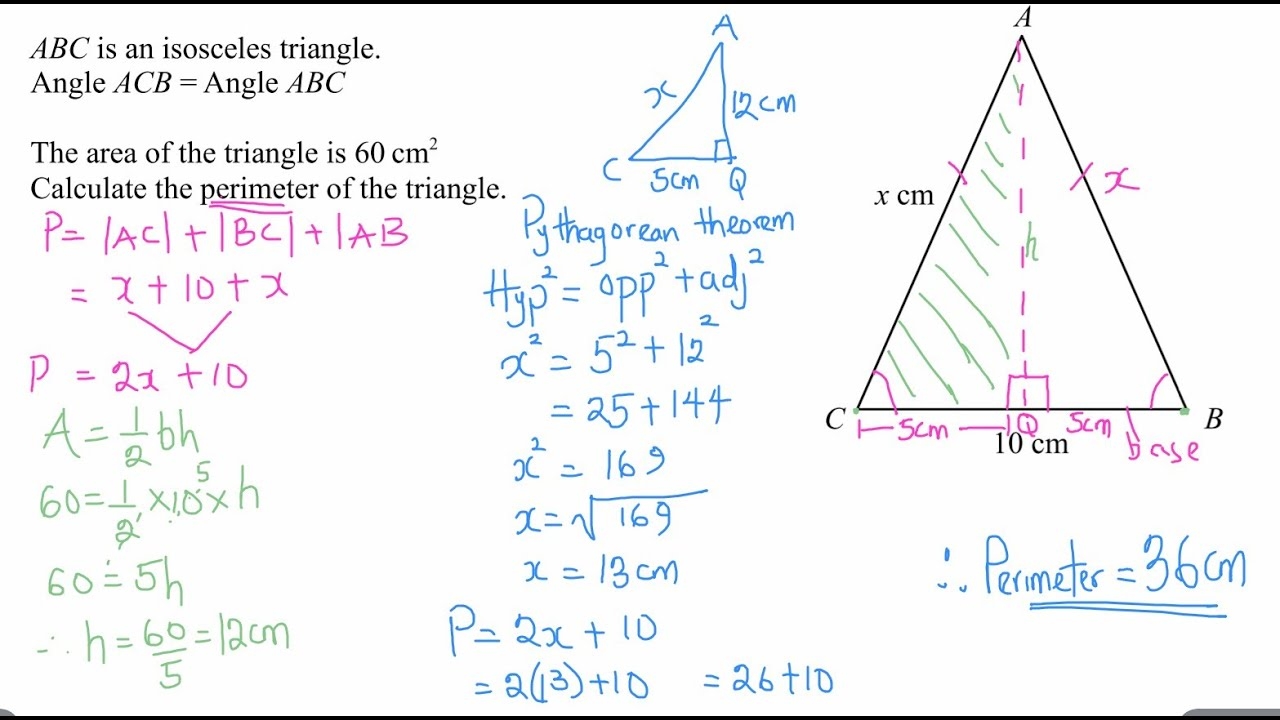 ABC is an isosceles triangle.
Angle ACB = Angle ABC
The area of the triangle is 60 cm²
Calculate the perimeter of the triangle.
P = |AC| + |BC| + |AB
= x + 10 + x
P = 2x + 10
A = 1/2 bh
60 = 1/2 × 10 5 × h
60 = 5h
∴ h = 60/5 = 12cm
A
x
12cm
C
5cm
Q
Pythagorean theorem
Hyp² = opp² + adj²
x² = 5² + 12²
= 25 + 144
x² = 169
x = √169
x = 13cm
P = 2x + 10
= 2(13) + 10 = 26 + 10
A
x cm
x
h
C
B
5cm
Q
5cm
10 cm
base
∴ Perimeter = 36cm